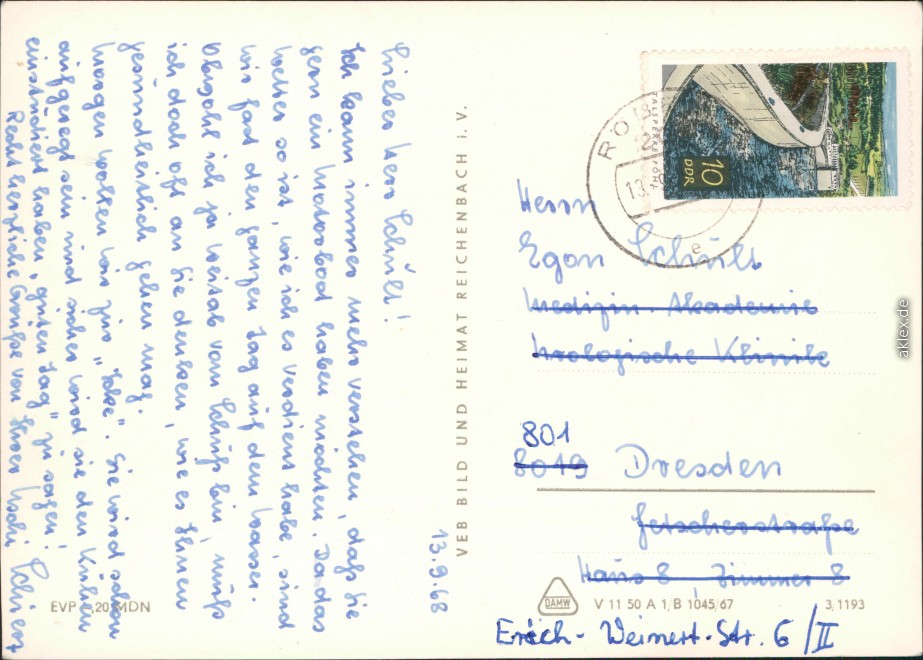 13.9.68
Lieber Herr Schulz!
Ich kann immer mehr verstehen, daß Sie
gern ein Motorboot haben möchten. Da das
Wetter so ist, wie ich es verdient habe, sind
wir fast den ganzen Tag auf dem Wasser.
Obwohl ich ja weitab vom Schuß bin, muß
ich doch oft an Sie denken, wie es Ihnen
gesundheitlich gehen mag.
Morgen wollen wir zur "Ilse". Sie wird schon
aufgeregt sein und sicher wird sie den Kühen
einstudiert haben, "guten Tag" zu sagen!
Recht herzliche Grüße von Ihrer Uschi
VEB BILD UND HEIMAT REICHENBACH i. V.
TALSPERRE PÖHL
10
DDR
RÖ
13.
e
Herrn
Egon Schulz
Medizin. Akademie
Urologische Klinik
801
8019 Dresden
Fetscherstraße
Haus 8 Zimmer 8
Erich-Weinert-Str. 6/II
EVP 0,20 MDN
DAMW
V 11 50 A 1, B 1045/67
3,1193
aklex.de